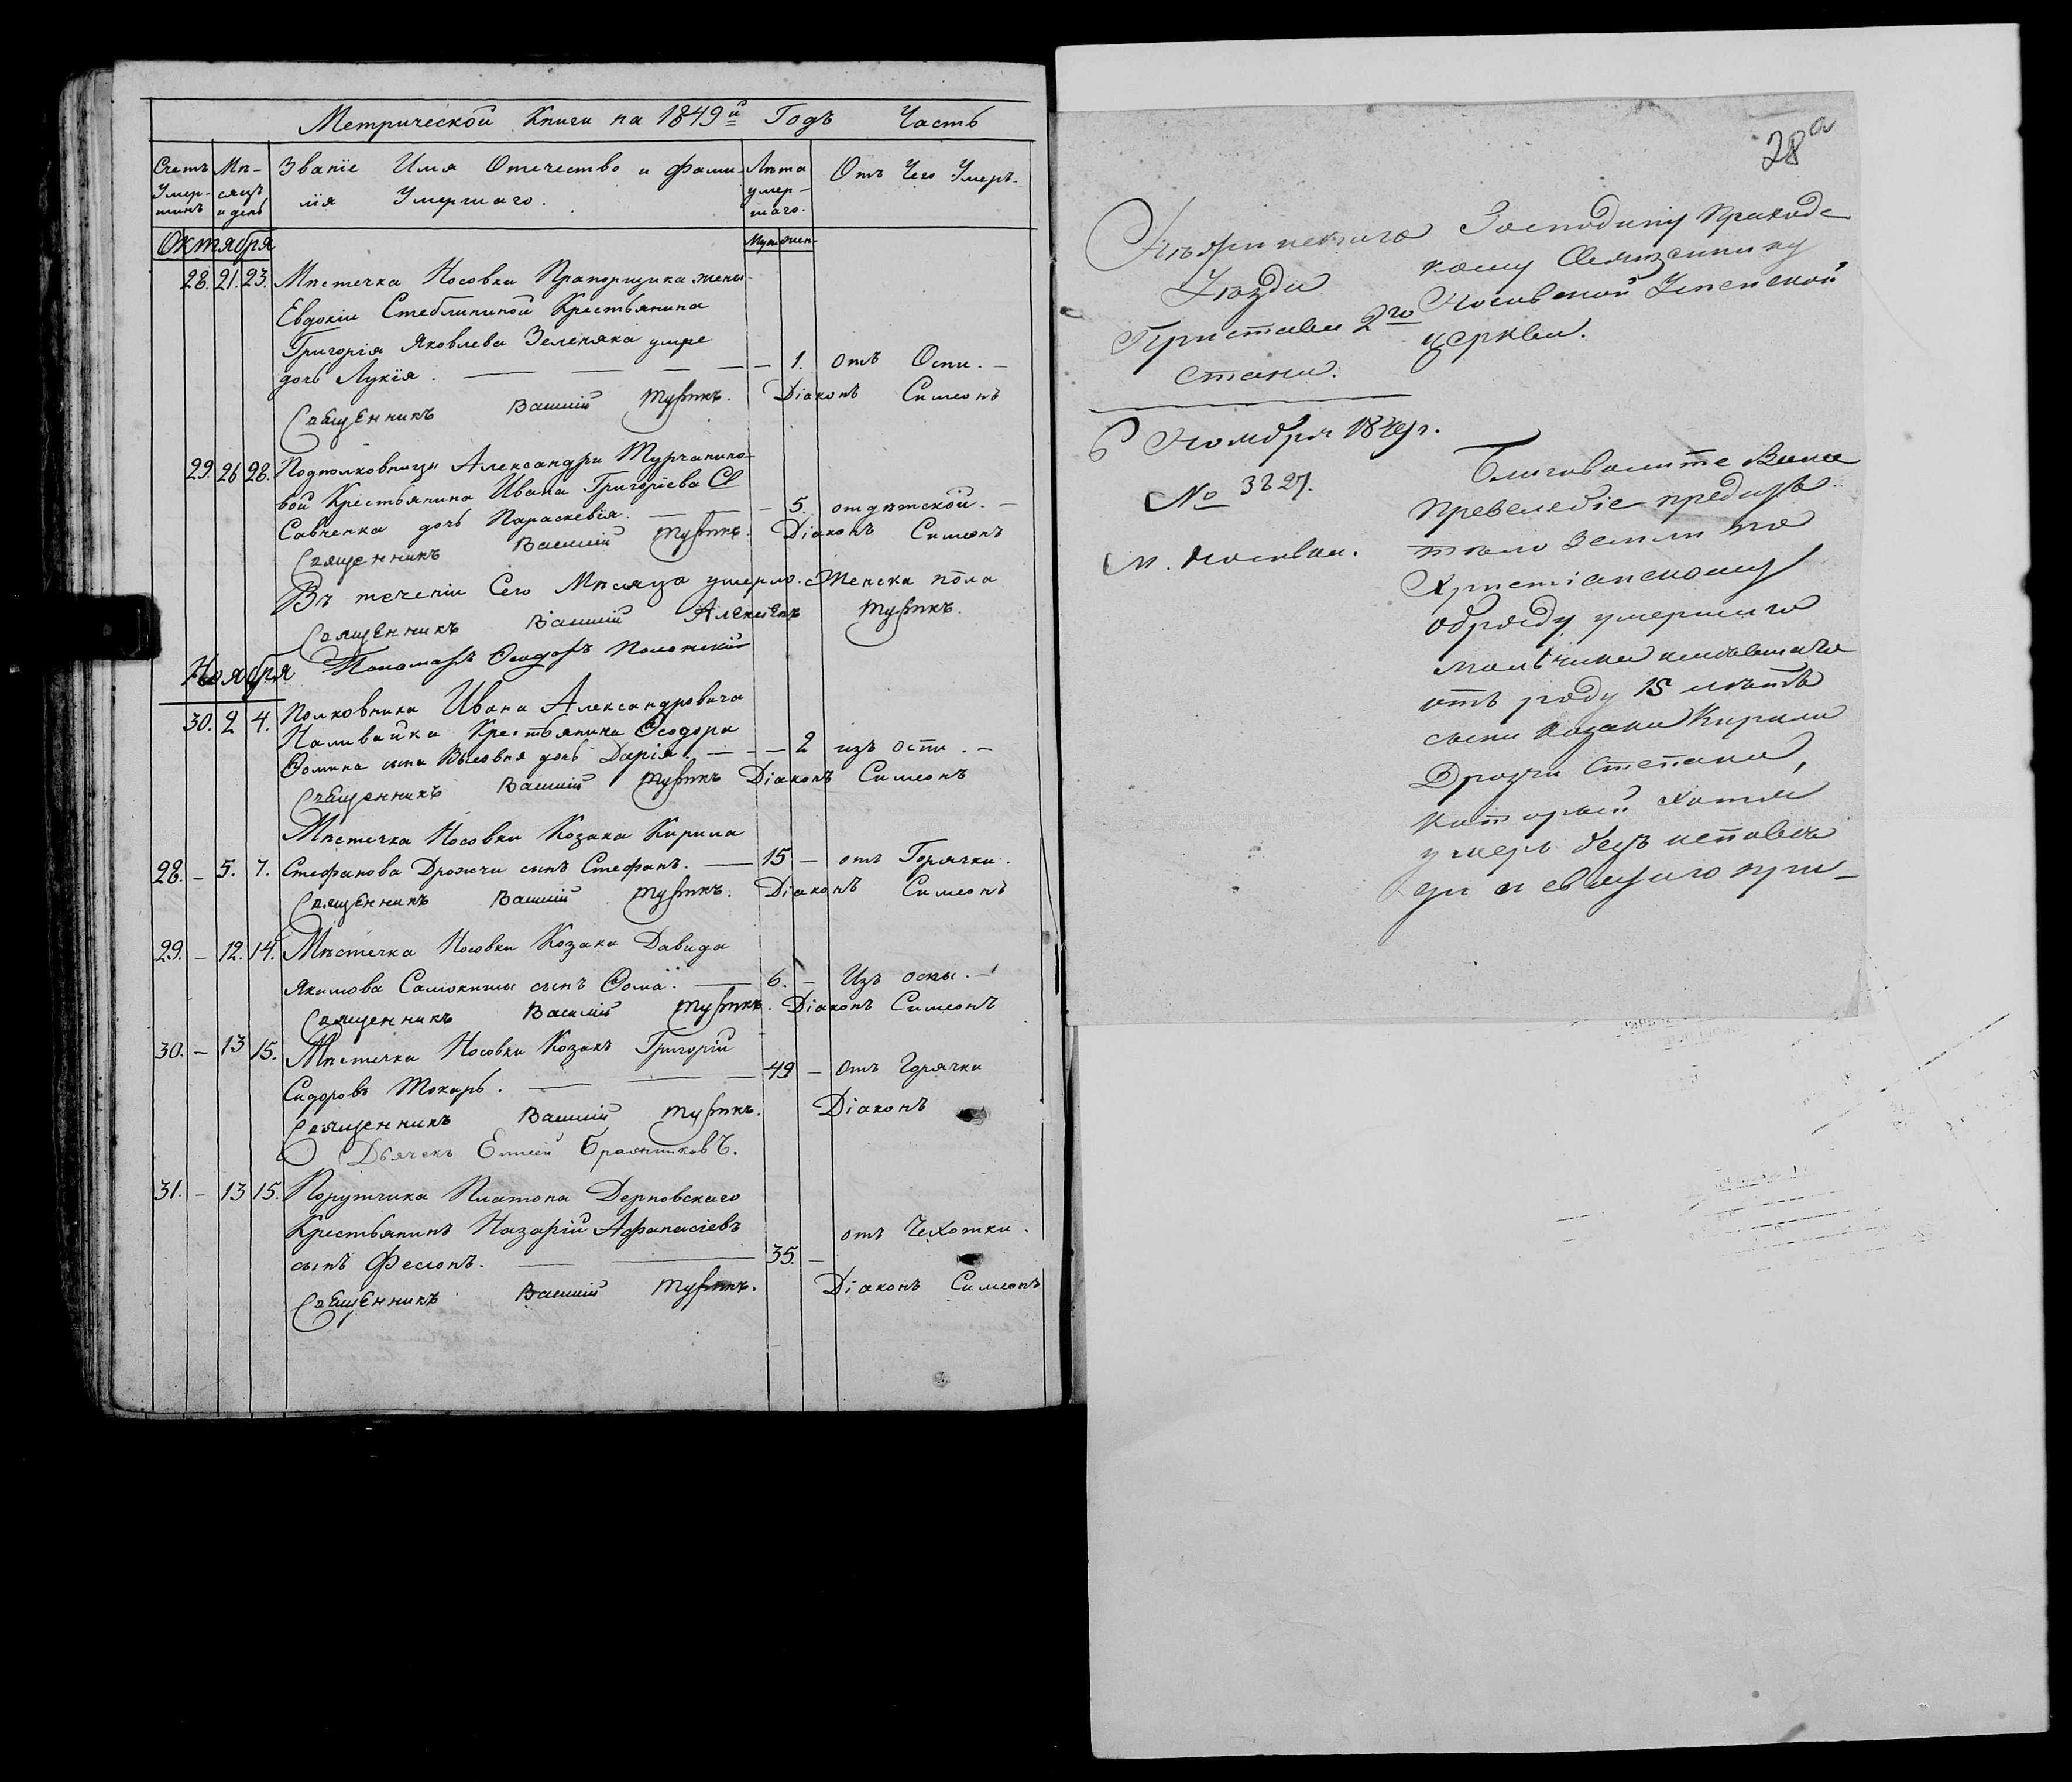 Метрической Книги на 1849й Годъ Часть
Счетъ Умер-шихъ
Мѣ-сяцъ и день
Званіе Имя Отечество и Фами-
лія Умершаго.
Лѣта умер-шаго.
Отъ Чего Умеръ.
Октября
Муж жен.
28. 21. 23. Мѣстечка Носовки Прапорщика жены
Евдокіи Стеблининой Крестьянина
Григорія Яковлева Зеленяка умре
дочь Лукія. — — — — 1. отъ Оспи. —
Священникъ Василій Діаконъ Симеонъ
29. 26 28. Подполковницы Александры Турчанино-
вой Крестьянина Ивана Григоріева
Савченка дочь Параскевія. — — 5. отдѣтской. —
Священникъ Василій Діаконъ Симеонъ
Въ теченіи Сего Мѣсяца умерло. Женска пола
Священникъ Василій Алексѣевъ
Пономарь Феодоръ Полонскій
Ноября
30. 2 4. Полковника Ивана Александровича
Наливайка Крестьянина Ѳеодора
Ѳомина сына дочь Дарія. — — — 2 изъ оспи. —
Священникъ Василій Діаконъ Симеонъ
Мѣстечка Носовки Козака Кирила
28. — 5. 7. Стефанова Дрожчи сынъ Стефанъ. — 15 — отъ Горячки.
Священникъ Василій Діаконъ Симеонъ
29. — 12. 14. Мѣстечка Носовки Козака Давида
Якимова Самокиши сынъ Ѳома. — 6. — Изъ оспы. —
Священникъ Василій Діаконъ Симеонъ
30. — 13 15. Мѣстечка Носовки Козакъ Григорій
Сидоровъ Токарь. — — — 49 — Отъ Горячки
Священникъ Василій Діаконъ
Дьячекъ Елисей
31. — 13 15. Порутчика Платона Дерновскаго
Крестьянинъ Назарій Афанасіевъ отъ Чехотки.
сынъ Фесюнъ. — — 35. —
Священникъ Василій Діаконъ Симеонъ
28а
Нѣжинскаго
Уѣзда
Пристава 2го
Стана.
6 Ноября 1849г.
№ 3827.
М. Носовка.
Господину Приход-
скому Священнику
Носовской Успенской
церкви.
Благоволите Ваше
Превелебіе предать
тѣло земли по
Христіанскому
обряду умершаго
мальчика имѣвшаго
отъ роду 15 лѣтъ
сына Козака Кирила
Дрозчи Степана,
который хотя
умеръ безъ исповѣ-
ди и святаго при-